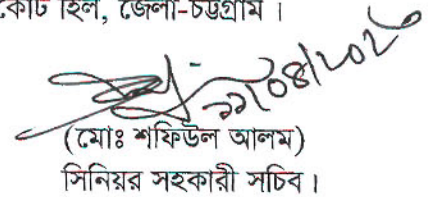 কোর্ট হিল, জেলা-চট্টগ্রাম।
২২/০৪/২০২৬
(মোঃ শফিউল আলম)
সিনিয়র সহকারী সচিব।